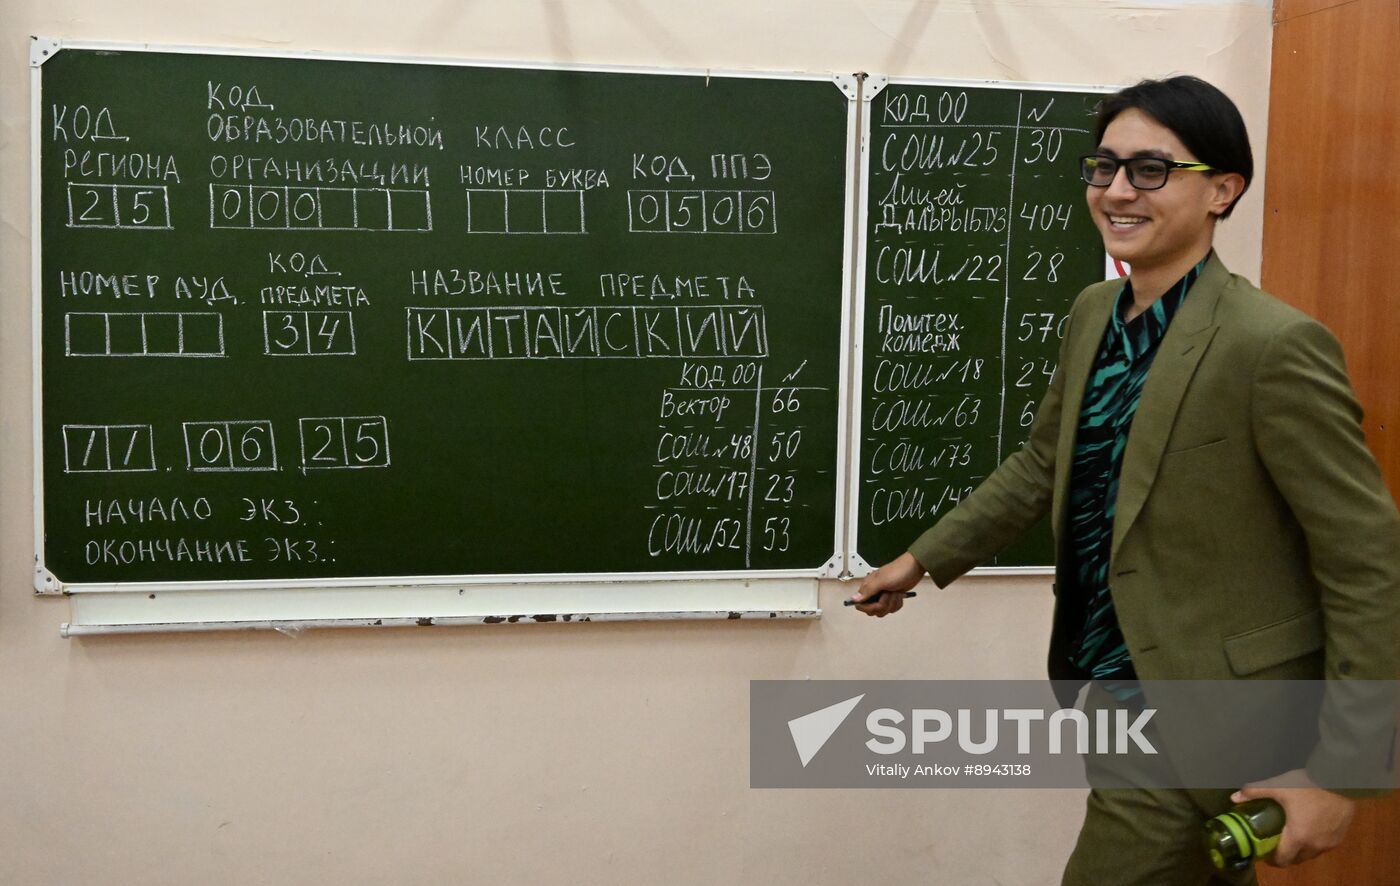 КОД
РЕГИОНА
25
КОД
ОБРАЗОВАТЕЛЬНОЙ
ОРГАНИЗАЦИИ
000
КЛАСС
НОМЕР БУКВА
КОД ППЭ
0506
НОМЕР АУД.
КОД
ПРЕДМЕТА
34
НАЗВАНИЕ ПРЕДМЕТА
КИТАЙСКИЙ
11.06.25
НАЧАЛО ЭКЗ.:
ОКОНЧАНИЕ ЭКЗ.:
КОД ОО N
Вектор 66
СОШ N48 50
СОШ N17 23
СОШ N52 53
КОД ОО N
СОШ N25 30
Лицей
ДАЛЬРЫБВТУЗ 404
СОШ N22 28
Политех.
колледж 570
СОШ N18 24
СОШ N63 6
СОШ N73
СОШ
SPUTNIK
Vitaliy Ankov #8943138